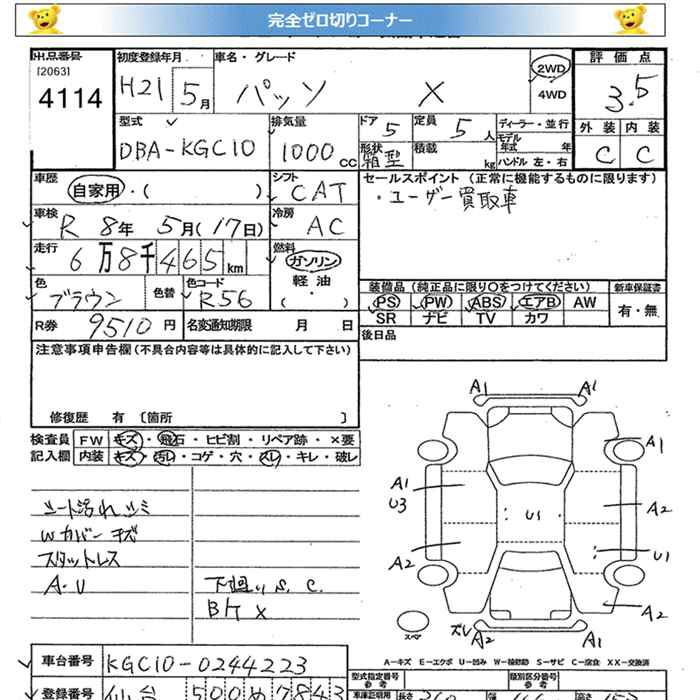 完全ゼロ切りコーナー
出品番号 初度登録年月 車名・グレード 2WD 評価点
[2063] 4114 H21 5月 パッソ X 4WD 3.5
型式 排気量 ドア 5 定員 5人 ディーラー・並行 外装 内装
DBA-KGC10 1000cc 形状 箱型 積載 kg モデル年式 年 ハンドル 左・右 C C
車歴 自家用・( ) シフト CAT セールスポイント (正常に機能するものに限ります)
・ユーザー買取車
車検 R 8年 5月(17日) 冷房 AC
走行 6万8千465km 燃料 ガソリン 軽油 ・( )
色 ブラウン 色替 色コード R56
装備品 (純正品に限り○をつけてください) 新車保証書
PS PW ABS エアB AW 有・無
SR ナビ TV カワ
R券 9510円 名変通知期限 月 日 後日品
注意事項申告欄(不具合内容等は具体的に記入して下さい)
修復歴 有 [箇所 ]
検査員 FW キズ・飛石・ヒビ割・リペア跡・×要
記入欄 内装 キズ・汚レ・コゲ・穴・スレ・キレ・破レ
シート汚れ シミ
Wカバー キズ
スタットレス
A・U 下廻り S. C.
Bケ X
A1 A1
A1
A1
U3 A2
U1
A2 U1
A2
スペ ズレ A2 A1
A-キズ E-エクボ U-凹み W-補修跡 S-サビ C-腐食 XX-交換済
車台番号 KGC10-0244223
型式指定番号 類別区分番号
参考 参考
登録番号 仙台 500 め 7843
車庫証明用 長さ 幅 高さ